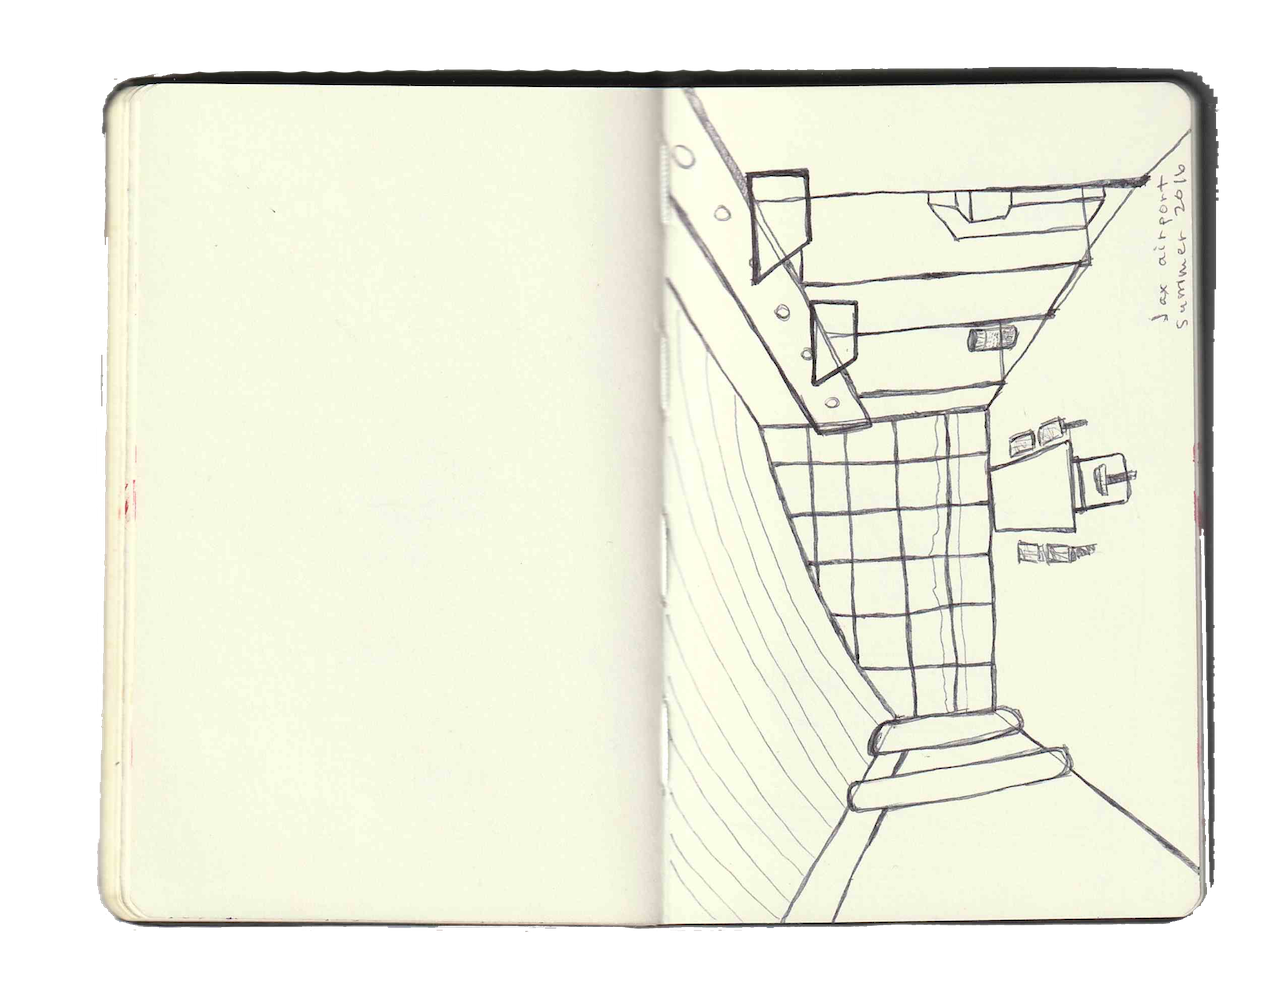 Jax airport
Summer 2016